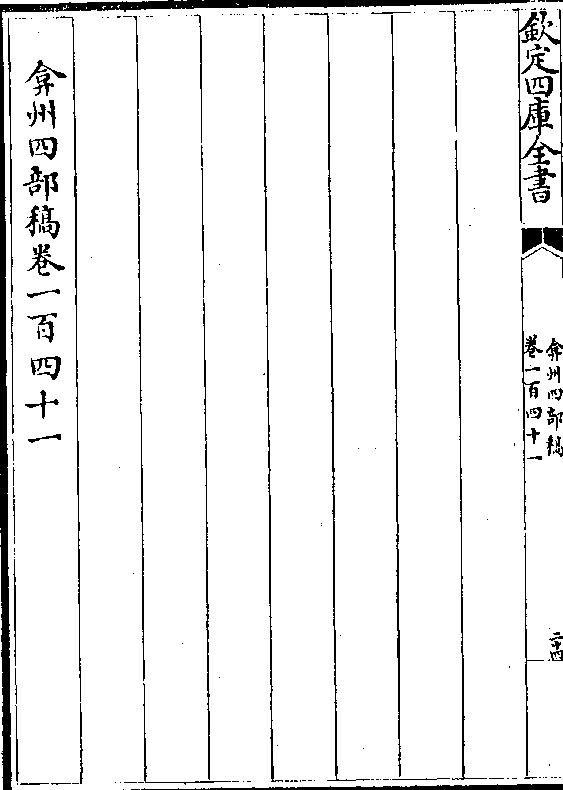 欽定四庫全書
弇州四部稿
卷一百四十一
二十四
弇州四部稿卷一百四十一